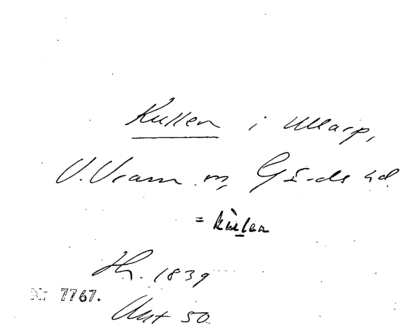 Kullen i Ullarp,
V. Vram sn, G-ds hd.
= kullen
Hr. 1839
Nr 7767.
Akt 50.